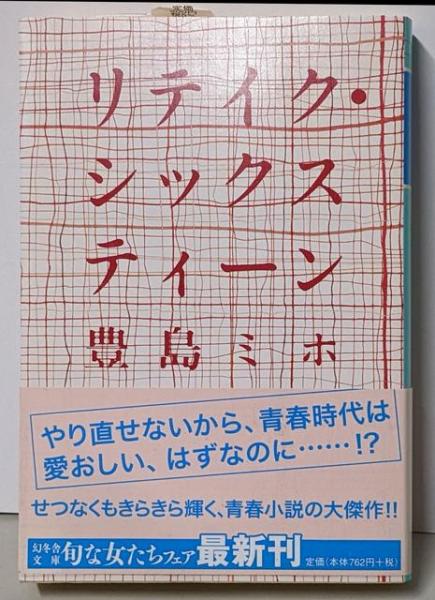 リテイク・
シックス
ティーン
豊島ミホ
やり直せないから、青春時代は
愛おしい、はずなのに……!?
せつなくもきらきら輝く、青春小説の大傑作!!
幻冬舎
文庫
旬な女たちフェア
最新刊
定価(本体762円+税)